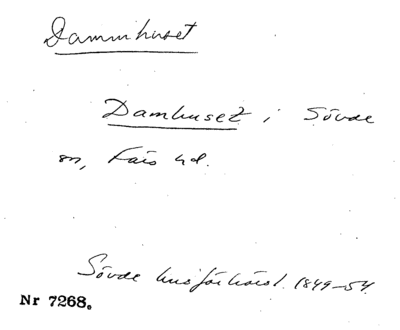 Dammhuset
Damhuset i Sövde
sn, Färs hd.
Sövde husförhörsl. 1849-54.
Nr 7268.